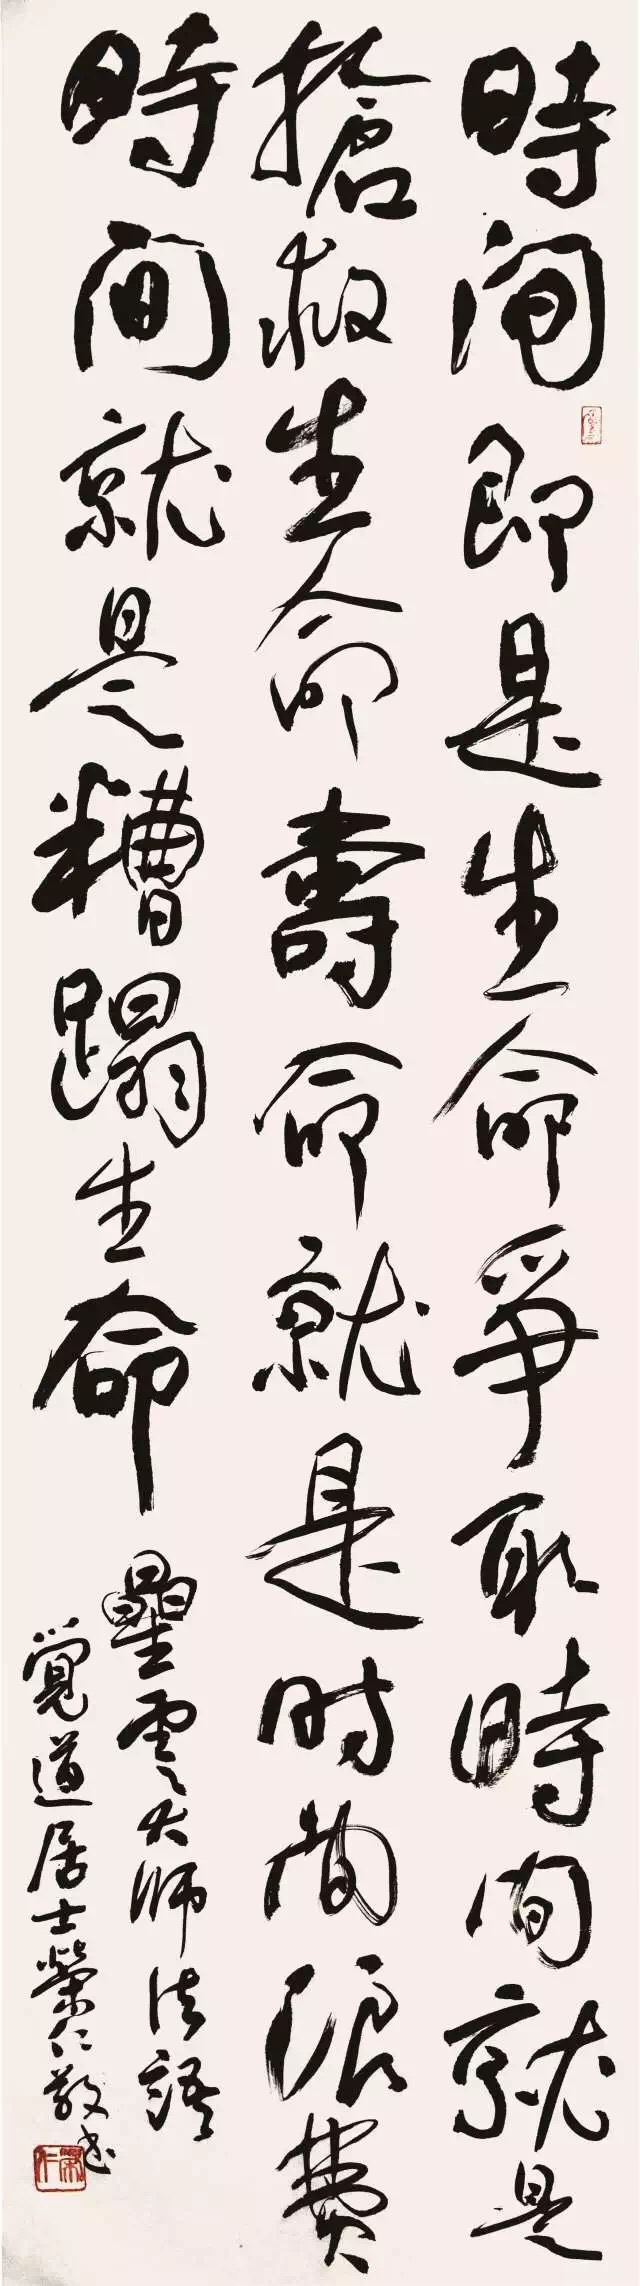 時間即是生命爭取時間就是
搶救生命壽命就是时間浪費
時間就是糟蹋生命
星雲大師法語
覺道居士榮仁敬书
榮仁